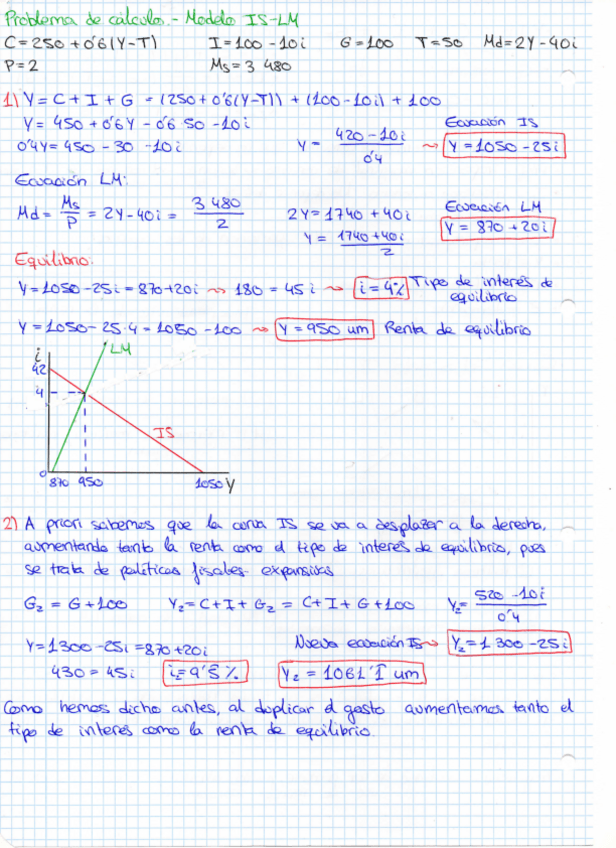 Problema de cálculo.- Modelo IS-LM
C=250+0'6(Y-T) I=100-10i G=100 T=50 Md=2Y-40i
P=2 Ms=3 480
1) Y=C+I+G = (250+0'6(Y-T))+(100-10i)+100
Y= 450+0'6Y-0'6 50-10i
0'4Y=450-30-10i
Y= 420-10i / 0'4 ⇝ Ecuación IS Y=1050-25i
Ecuación LM:
Md= Ms/P = 2Y-40i = 3 480/2
2Y=1740+40i
Y= 1740+40i / 2
Ecuación LM
Y= 870+20i
Equilibrio:
Y=1050-25i=870+20i ⇝ 180=45i ⇝ i=4% Tipo de interés de equilibrio
Y=1050-25·4=1050-100 ⇝ Y=950 um Renta de equilibrio
i
LM
42
4
IS
0
870 950 1050 Y
2) A priori sabemos que la curva IS se va a desplazar a la derecha,
aumentando tanto la renta como el tipo de interés de equilibrio, pues
se trata de políticas fiscales expansivas
G₂=G+100 Y₂=C+I+G₂=C+I+G+100 Y₂= 520-10i / 0'4
Y=1300-25i=870+20i Nueva ecuación IS⇝ Y₂=1 300-25i
430=45i i₂=9'5% Y₂=1061'1 um
Como hemos dicho antes, al duplicar el gasto aumentamos tanto el
tipo de interés como la renta de equilibrio.